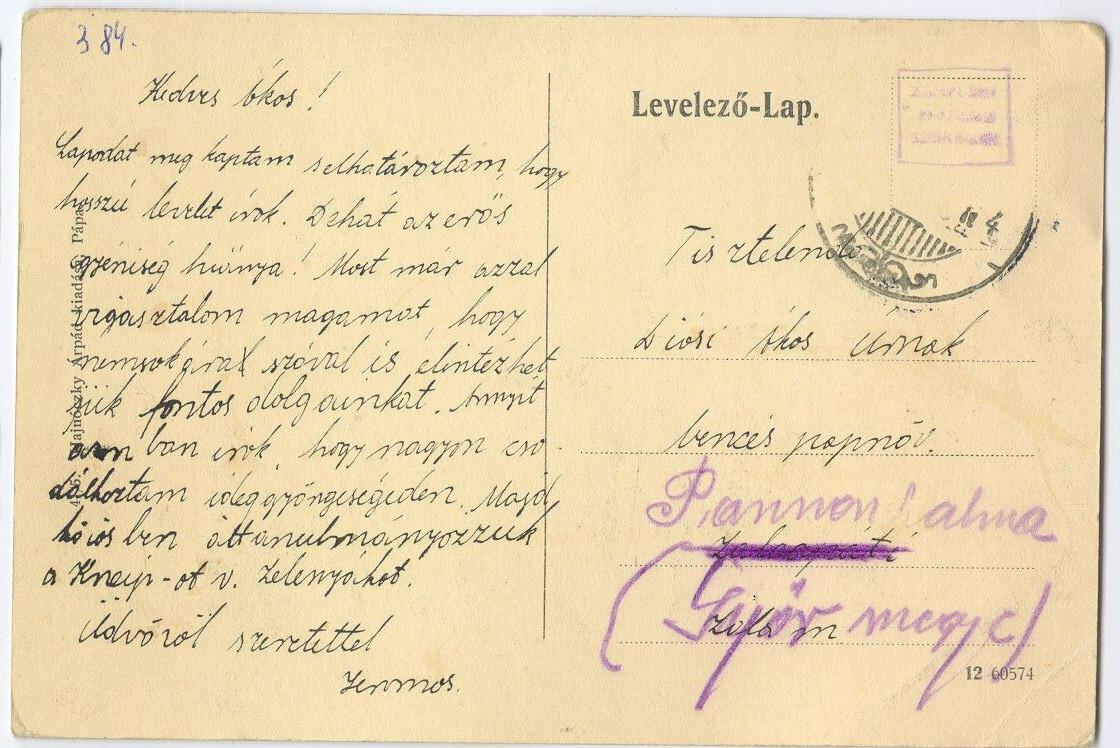 384.
Kedves Ákos!
Lapodat meg kaptam selhatároztam, hogy
hosszú levelet írok. Dehát az erős
gyéniség hiánya! Most már azzal
vigasztalom magamat, hogy
nemsokára szóval is elintézhet
jük fontos dolgainkat. Annyit
azonban írok, hogy nagyon cso
dálkoztam ideggyöngeségeden. Majd
közösben áttanulmányozzuk
a Kneip-ot v. Zelenyákot.
Üdvözöl szeretettel
Levelező-Lap.
Tisztelendő
Diósi Ákos úrnak
bencés papnöv.
Pannonhalma
Zalaapáti
(Győr megye)
Zala m
12 60574
Hajnóczky Árpád kiadása, Pápa